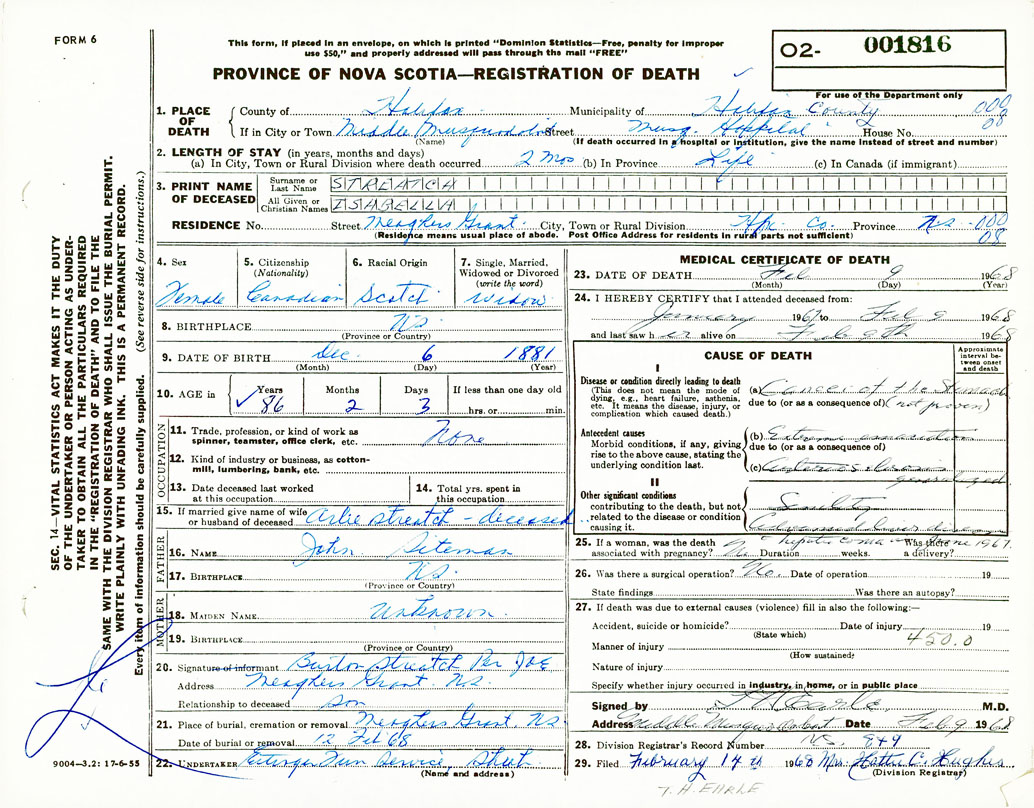 FORM 6
This form, if placed in an envelope, on which is printed "Dominion Statistics—Free, penalty for improper
use $50," and properly addressed will pass through the mail "FREE"
PROVINCE OF NOVA SCOTIA—REGISTRATION OF DEATH
O2- 001816
For use of the Department only
1. PLACE OF DEATH
County of Halifax Municipality of Halifax County 000
If in City or Town Middle Musquodoboit Street Musq. Hospital House No. 08
(Name) (If death occurred in a hospital or institution, give the name instead of street and number)
2. LENGTH OF STAY (in years, months and days)
(a) In City, Town or Rural Division where death occurred 2 Mos (b) In Province Life (c) In Canada (if immigrant)
3. PRINT NAME OF DECEASED
Surname or Last Name STREATCH
All Given or Christian Names ISABELLA
RESIDENCE No. Street Meaghers Grant City, Town or Rural Division Hfx Co. Province NS 000
(Residence means usual place of abode. Post Office Address for residents in rural parts not sufficient) 08
4. Sex
Female
5. Citizenship
(Nationality)
Canadian
6. Racial Origin
Scotch
7. Single, Married,
Widowed or Divorced
(write the word)
Widow
8. BIRTHPLACE NS
(Province or Country)
9. DATE OF BIRTH Dec. 6 1881
(Month) (Day) (Year)
10. AGE in Years Months Days If less than one day old
86 2 3 hrs. or min.
OCCUPATION
11. Trade, profession, or kind of work as
spinner, teamster, office clerk, etc. None
12. Kind of industry or business, as cotton-
mill, lumbering, bank, etc.
13. Date deceased last worked
at this occupation
14. Total yrs. spent in
this occupation
15. If married give name of wife
or husband of deceased Arlie Streatch - deceased
FATHER
16. NAME John Siteman
17. BIRTHPLACE NS
(Province or Country)
MOTHER
18. MAIDEN NAME Unknown
19. BIRTHPLACE
(Province or Country)
20. Signature of informant Burton Streatch Per
Address Meaghers Grant. NS.
Relationship to deceased Son
21. Place of burial, cremation or removal Meaghers Grant, NS
Date of burial or removal 12 Feb 68
22. UNDERTAKER Ettinger Fun Service, Shut
(Name and address)
MEDICAL CERTIFICATE OF DEATH
23. DATE OF DEATH Feb 9 1968
(Month) (Day) (Year)
24. I HEREBY CERTIFY that I attended deceased from:
January 1967 to Feb 9 1968
and last saw h er alive on Feb 9th 1968
CAUSE OF DEATH
Approximate
interval be-
tween onset
and death
I
Disease or condition directly leading to death
(This does not mean the mode of
dying, e.g., heart failure, asthenia,
etc. It means the disease, injury, or
complication which caused death.)
(a) Cancer of the Stomach
due to (or as a consequence of) (not proven)
Antecedent causes
Morbid conditions, if any, giving
rise to the above cause, stating the
underlying condition last.
(b) Extreme emaciation
due to (or as a consequence of)
(c) Arteriosclerosis
generalized
II
Other significant conditions
contributing to the death, but not
related to the disease or condition
causing it.
Senility
Advanced liver disease
hepatic coma June 1967.
25. If a woman, was the death
associated with pregnancy? No Duration weeks. Was there a delivery?
26. Was there a surgical operation? No. Date of operation 19
State findings Was there an autopsy?
27. If death was due to external causes (violence) fill in also the following:—
Accident, suicide or homicide? Date of injury 19
(State which)
450.0
Manner of injury
(How sustained)
Nature of injury
Specify whether injury occurred in industry, in home, or in public place
Signed by M.D.
Address Middle Musquodoboit Date Feb 9 1968
28. Division Registrar's Record Number NS. 849
29. Filed February 14th 1968 Mrs. Hattie C. Hughes
(Division Registrar)
T. H. EARLE
SEC. 14—VITAL STATISTICS ACT MAKES IT THE DUTY
OF THE UNDERTAKER OR PERSON ACTING AS UNDER-
TAKER TO OBTAIN ALL THE PARTICULARS REQUIRED
IN THE "REGISTRATION OF DEATH" AND TO FILE THE
SAME WITH THE DIVISION REGISTRAR WHO SHALL ISSUE THE BURIAL PERMIT.
WRITE PLAINLY WITH UNFADING INK. THIS IS A PERMANENT RECORD.
Every item of information should be carefully supplied. (See reverse side for instructions.)
9004-3.2: 17-6-55